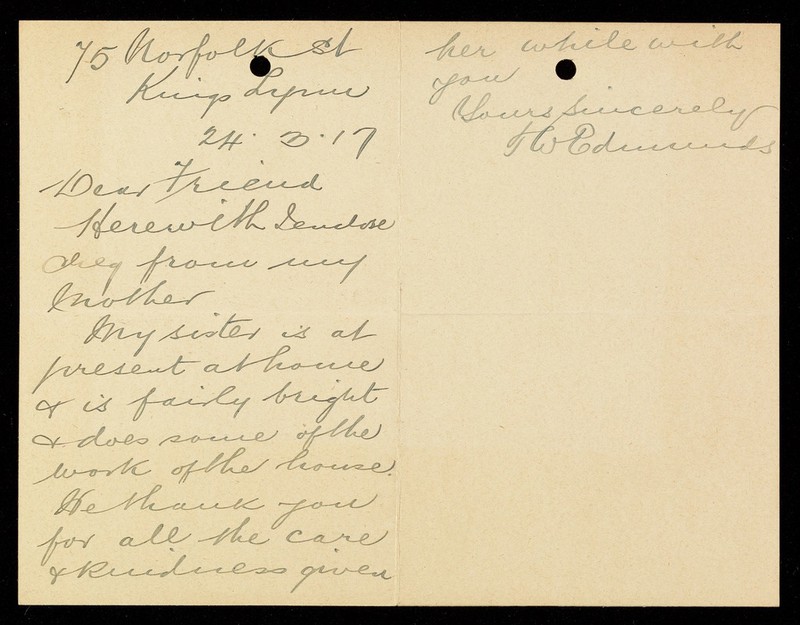 75 Norfolk St
Kings Lynn
24. 3. 17
Dear Friend
Herewith I enclose
cheq from my
Mother
My sister is at
present at home
& is fairly bright
& does some of the
work of the house.
We thank you
for all the care
& kindness given
her while with
you
Yours sincerely
J W Edmunds